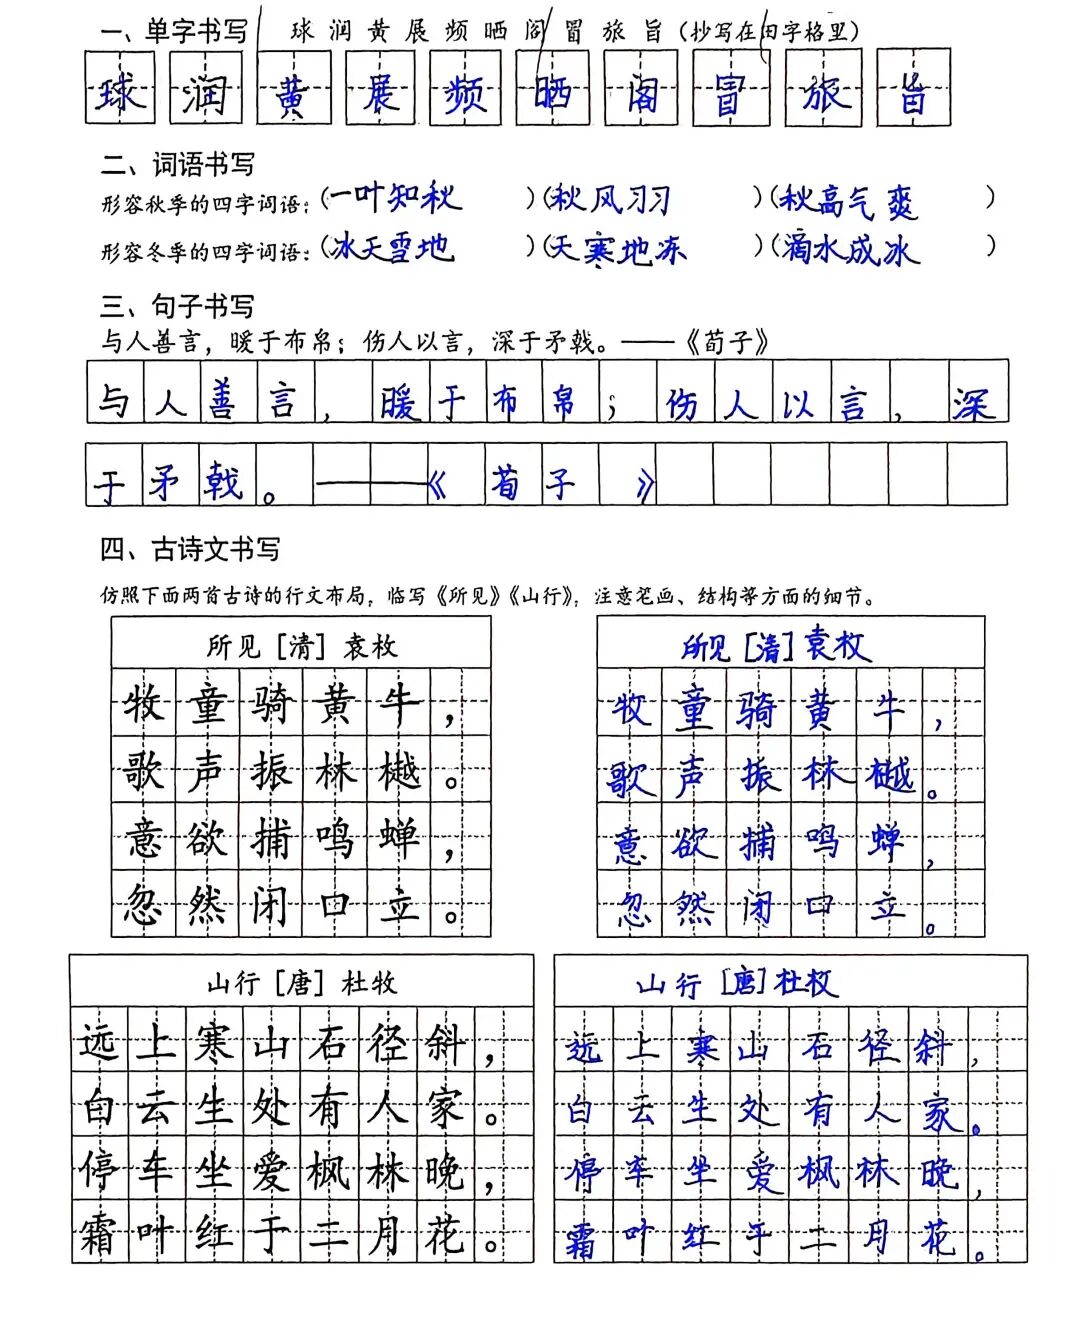 一、单字书写 球 润 黄 展 频 晒 阁 冒 旅 旨 (抄写在田字格里)
球 润 黄 展 频 晒 阁 冒 旅 旨
二、词语书写
形容秋季的四字词语：(一叶知秋 )(秋风习习 )(秋高气爽 )
形容冬季的四字词语：(冰天雪地 )(天寒地冻 )(滴水成冰 )
三、句子书写
与人善言，暖于布帛；伤人以言，深于矛戟。——《荀子》
与人善言，暖于布帛；伤人以言，深
于矛戟。——《荀子》
四、古诗文书写
仿照下面两首古诗的行文布局，临写《所见》《山行》，注意笔画、结构等方面的细节。
所见 [清] 袁枚
牧童骑黄牛，
歌声振林樾。
意欲捕鸣蝉，
忽然闭口立。
所见 [清] 袁枚
牧童骑黄牛，
歌声振林樾。
意欲捕鸣蝉，
忽然闭口立。
山行 [唐] 杜牧
远上寒山石径斜，
白云生处有人家。
停车坐爱枫林晚，
霜叶红于二月花。
山行 [唐] 杜牧
远上寒山石径斜，
白云生处有人家。
停车坐爱枫林晚，
霜叶红于二月花。